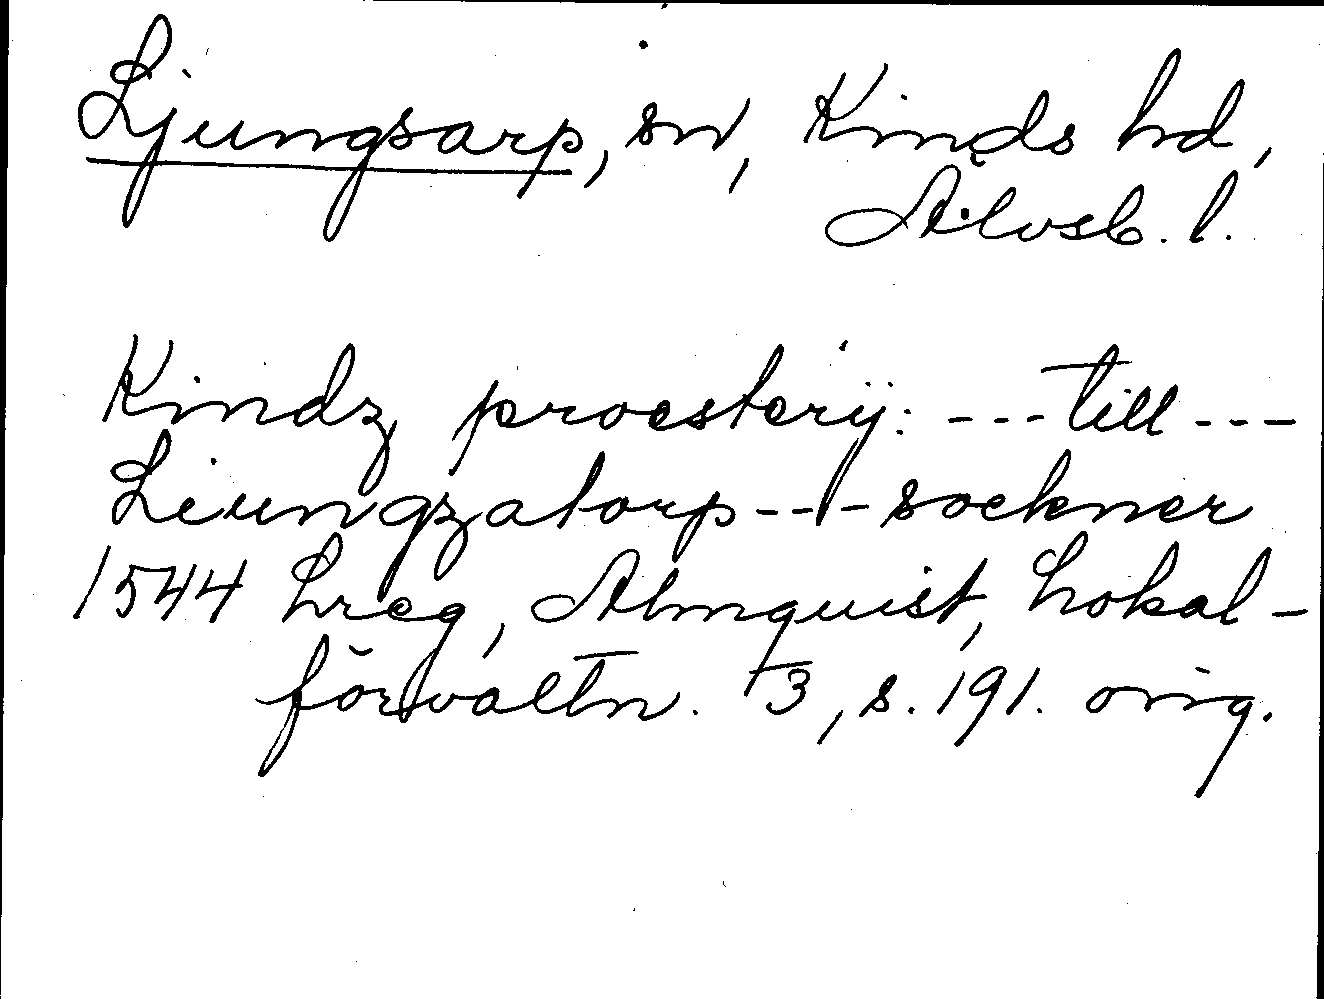 Ljungsarp, sn, Kinds hd,
Älvsb. l.
Kindz proesterij: --- till ---
Liungzatorp --- sockner
1544 Lreg, Almquist, Lokal-
förvaltn. 3, s. 191. orig.